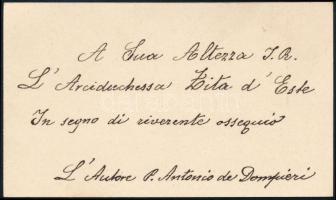 A Sua Altezza I. R.
L' Arciduchessa Zita d' Este
In segno di riverente ossequio
L' Autore P. Antonio de Dompieri